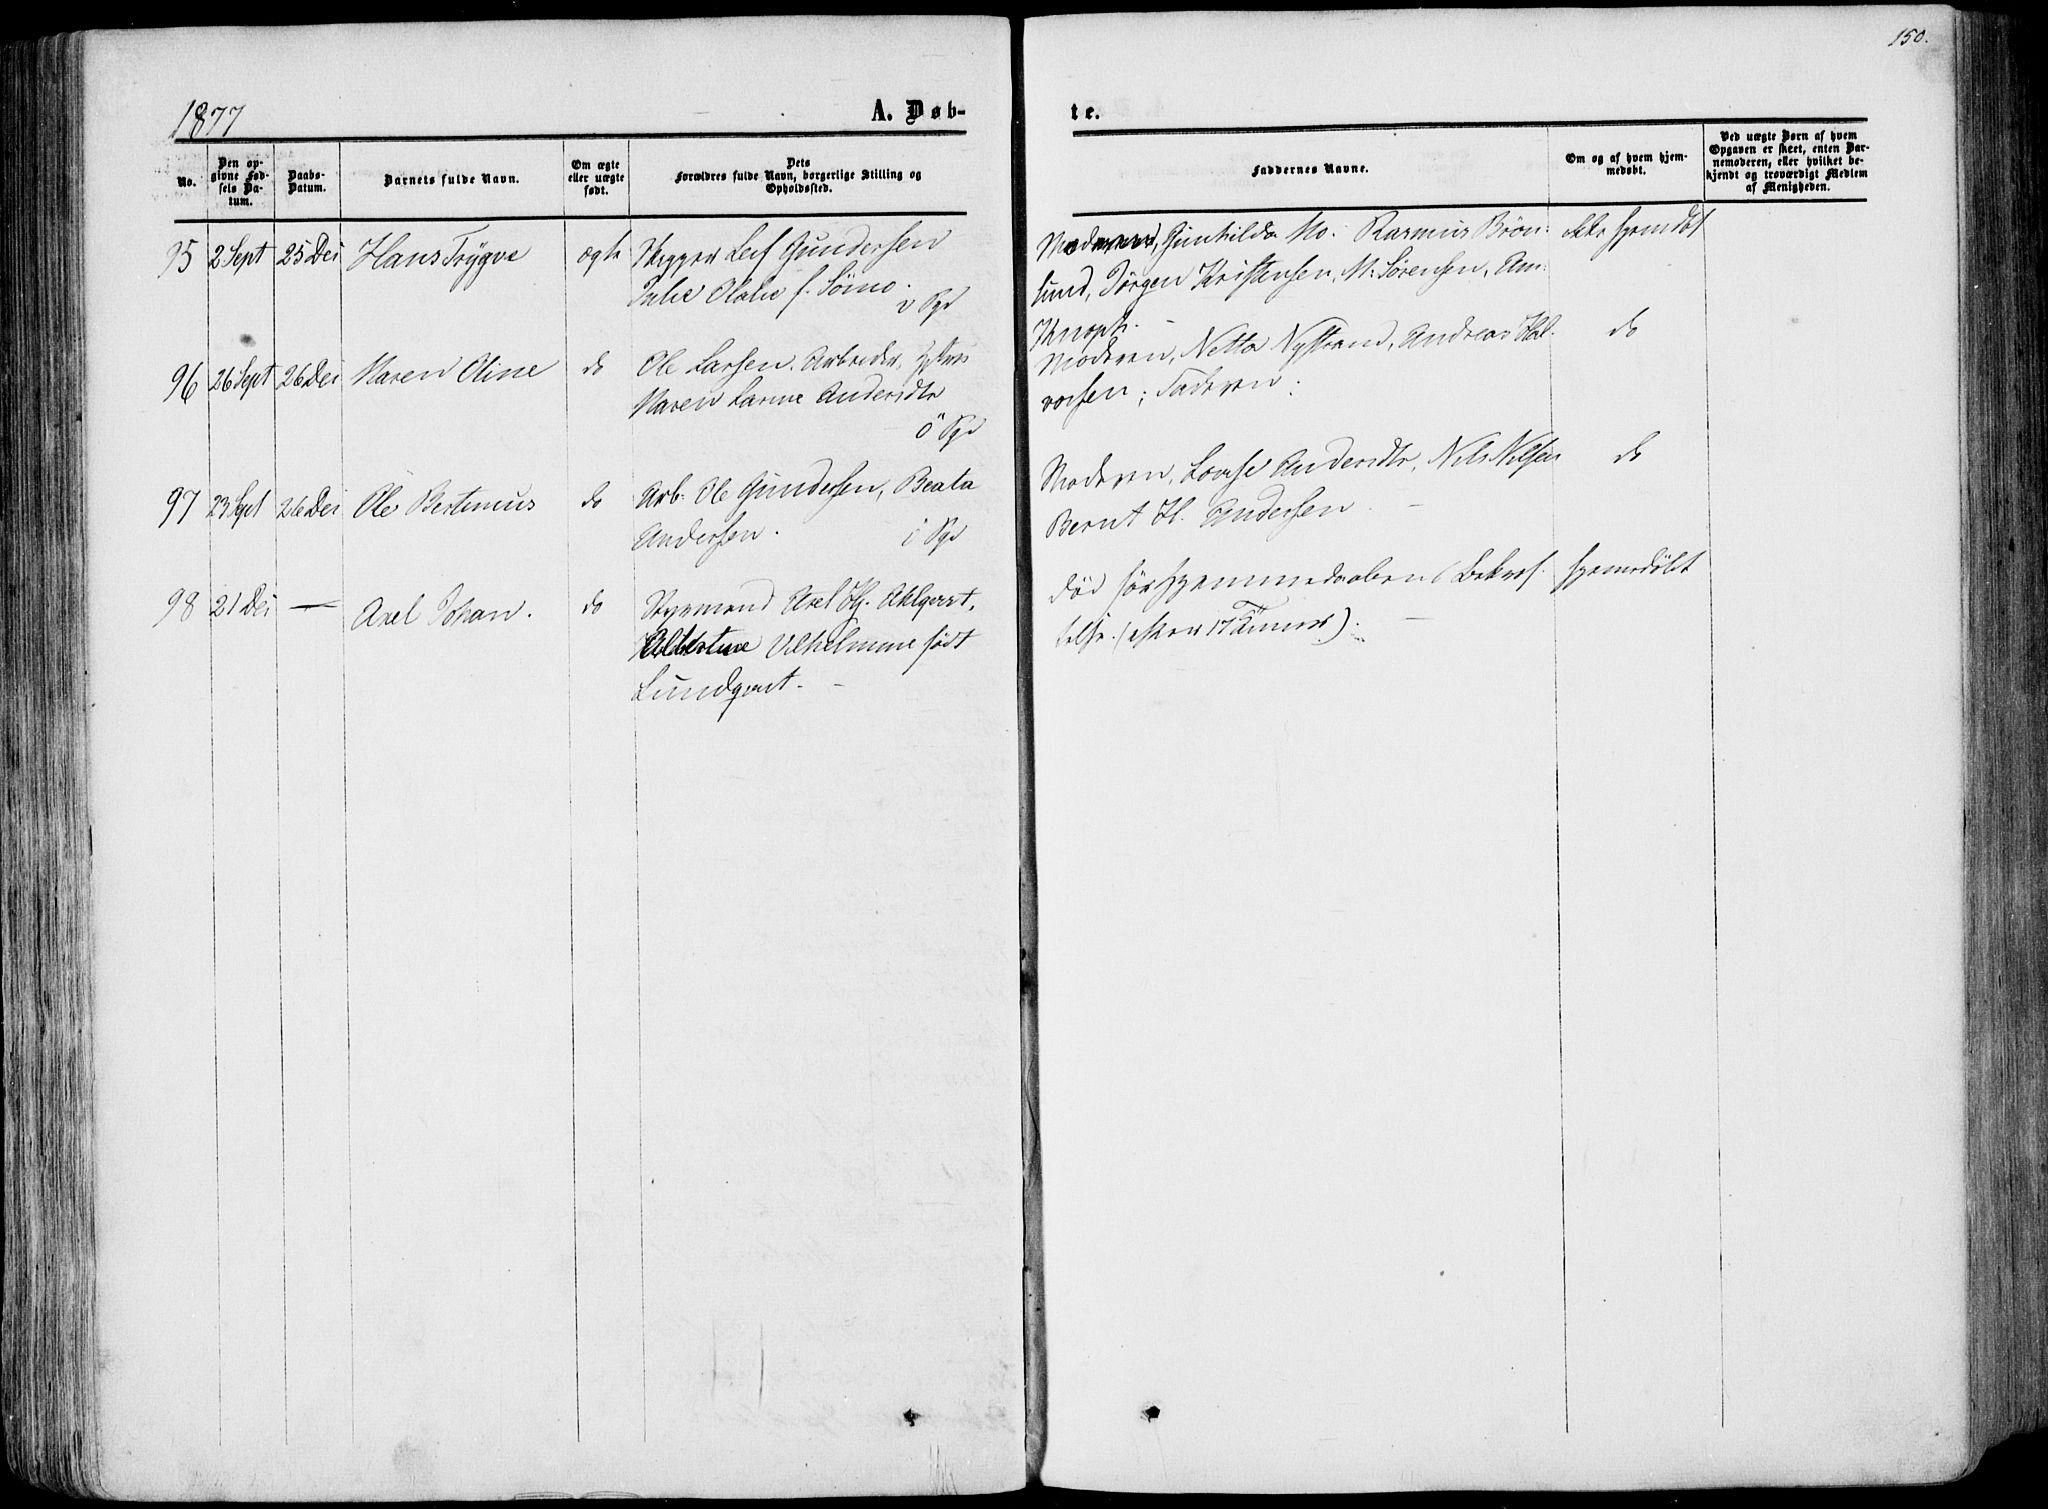 150.
1877
A. Døb-
te.
No.
Den opgivne Fødsels Datum.
Daabs-Datum.
Barnets fulde Navn.
Om ægte eller uægte født.
Dets Forældres fulde Navn, borgerlige Stilling og Opholdssted.
Faddernes Navne.
Om og af hvem hjemmedøbt.
Ved uægte Børn af hvem Opgaven er skeet, enten Barnemoderen, eller hvilket bekjendt og troværdigt Medlem af Menigheden.
95 2 Sept 25 Dei Hans Trygve ægte Skipper Leif Gundersen
Julie Olalie f. Sömo.
Moderen, Gunhilda Mo. Rasmus Brön-
lund, Jörgen Kristensen, M. Sörensen, Am:
Knoph.
ikke hjemdbt
96 26 Sept 26 Dei Maren Oline do Ole Larsen. Arbeider,
Maren Larine Andersdtr
Moderen, Netta Nystrand, Andreas Hal-
vorsen; Faderen:
do
97 23 Sept 26 Dei Ole Bertinius do Arb: Ole Gundersen, Beata
Andersen.
Moderen, Lovise Andersdtr, Nils Nilsen
Bernt H. Andersen.
do
98 21 Dei — Axel Johan. do Styrmand Axel Hj. Ahlqvist,
Albertine Vilhelmine født
Lundqvist.
död før Hjemmedaabens Bekræf-
telse. (efter 17 Timer).
hjemmedöbt